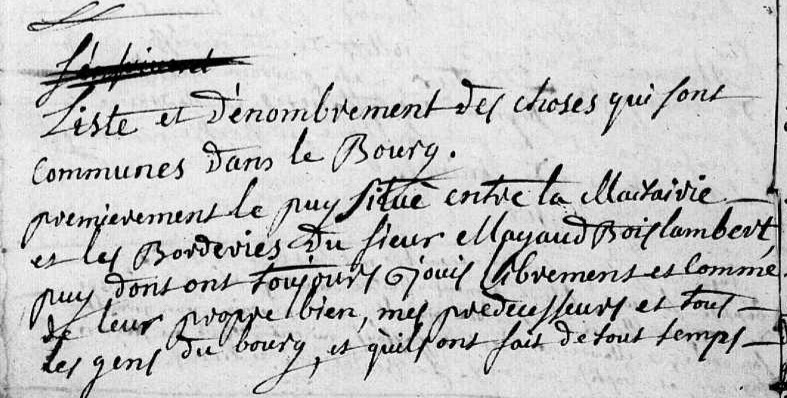 Liste et dénombrement des choses qui sont
communes dans le Bourg.
premierement le puy situé entre la Mactairie
et les Borderies du sieur Mayaud Boislambert,
puy dont ont toujours jouis librement et comme
de leur propre bien, mes predecesseurs et tous
les gens du bourg, et qu'ils ont fait de tout temps